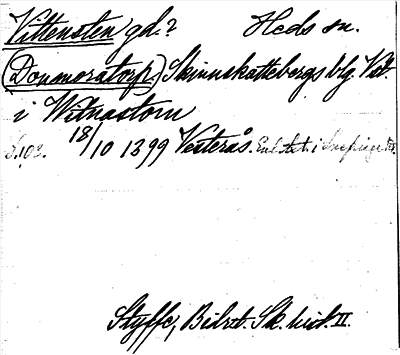 Vittensten gd.? Heds sn.
(Dommaratorp) Skinnskattebergs blg. Vstl.
i Witnastom
S.103. 18/10 1399 Vesterås. Enl. tkt. i
Styffe, Bidr. t. Sk. hist. II.